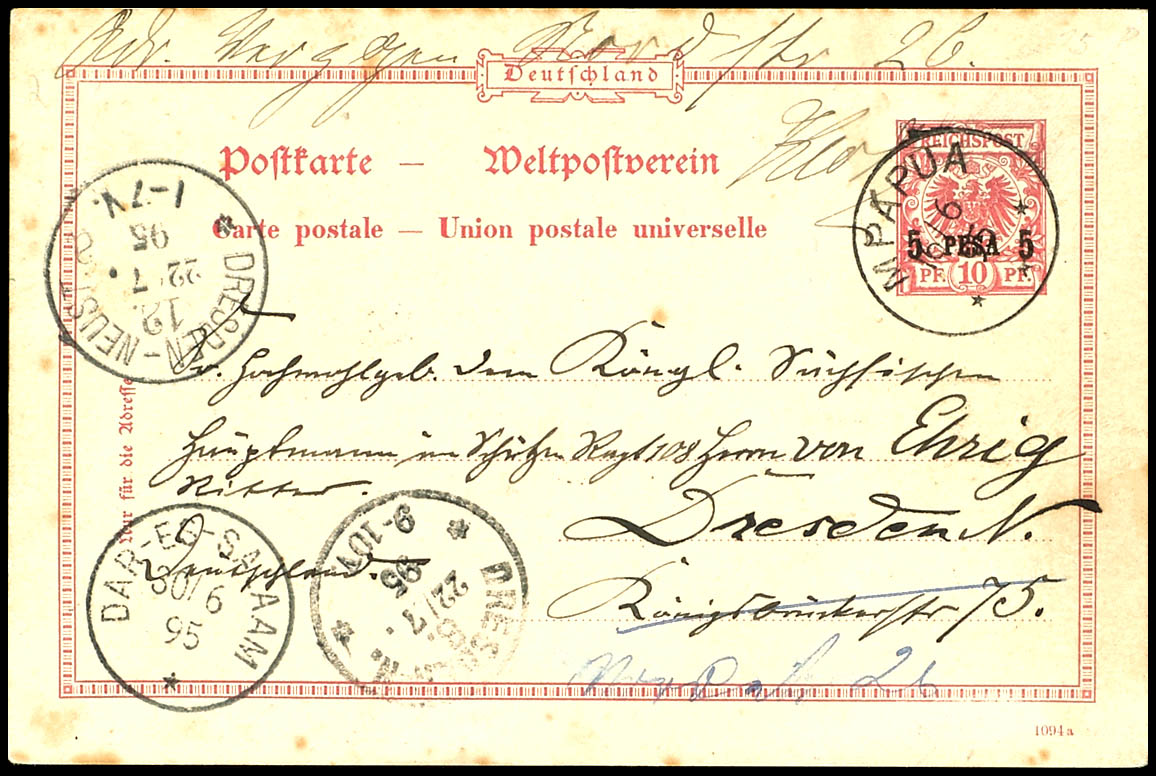 Adr. Verzogen Nordstr 26.
Deutschland
Postkarte — Weltpostverein
Carte postale — Union postale universelle
REICHSPOST
5 PESA 5
PF. 10 PF.
MPAPUA
6
95
DRESDEN-NEUSTADT
12.
22/7.
95
1-7V.
Nur für die Adresse
Sr. Hochwohlgeb. dem Königl. Sächsischen
Hauptmann im Schützen Regt 108 Herrn von Ehrig
Ritter.
Dresden N.
Deutschland.
Königsbrückerstr 75.
DAR-ES-SALAAM
30/6
95
DRESDEN-N.
22/7.
95
9-10V
Nordstr 26
1094a